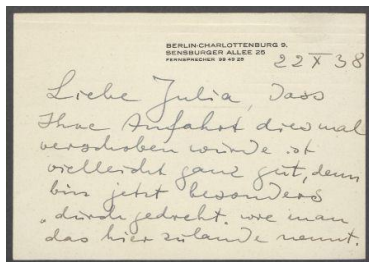 BERLIN-CHARLOTTENBURG 9.
SENSBURGER ALLEE 25
FERNSPRECHER 98 49 25
22 X 38
Liebe Julia, dass
Ihre Anfahrt diesmal
verschoben wurde ist
vielleicht ganz gut, denn
bin jetzt besonders
"durchgedreht. wie man
das hierzulande nennt.